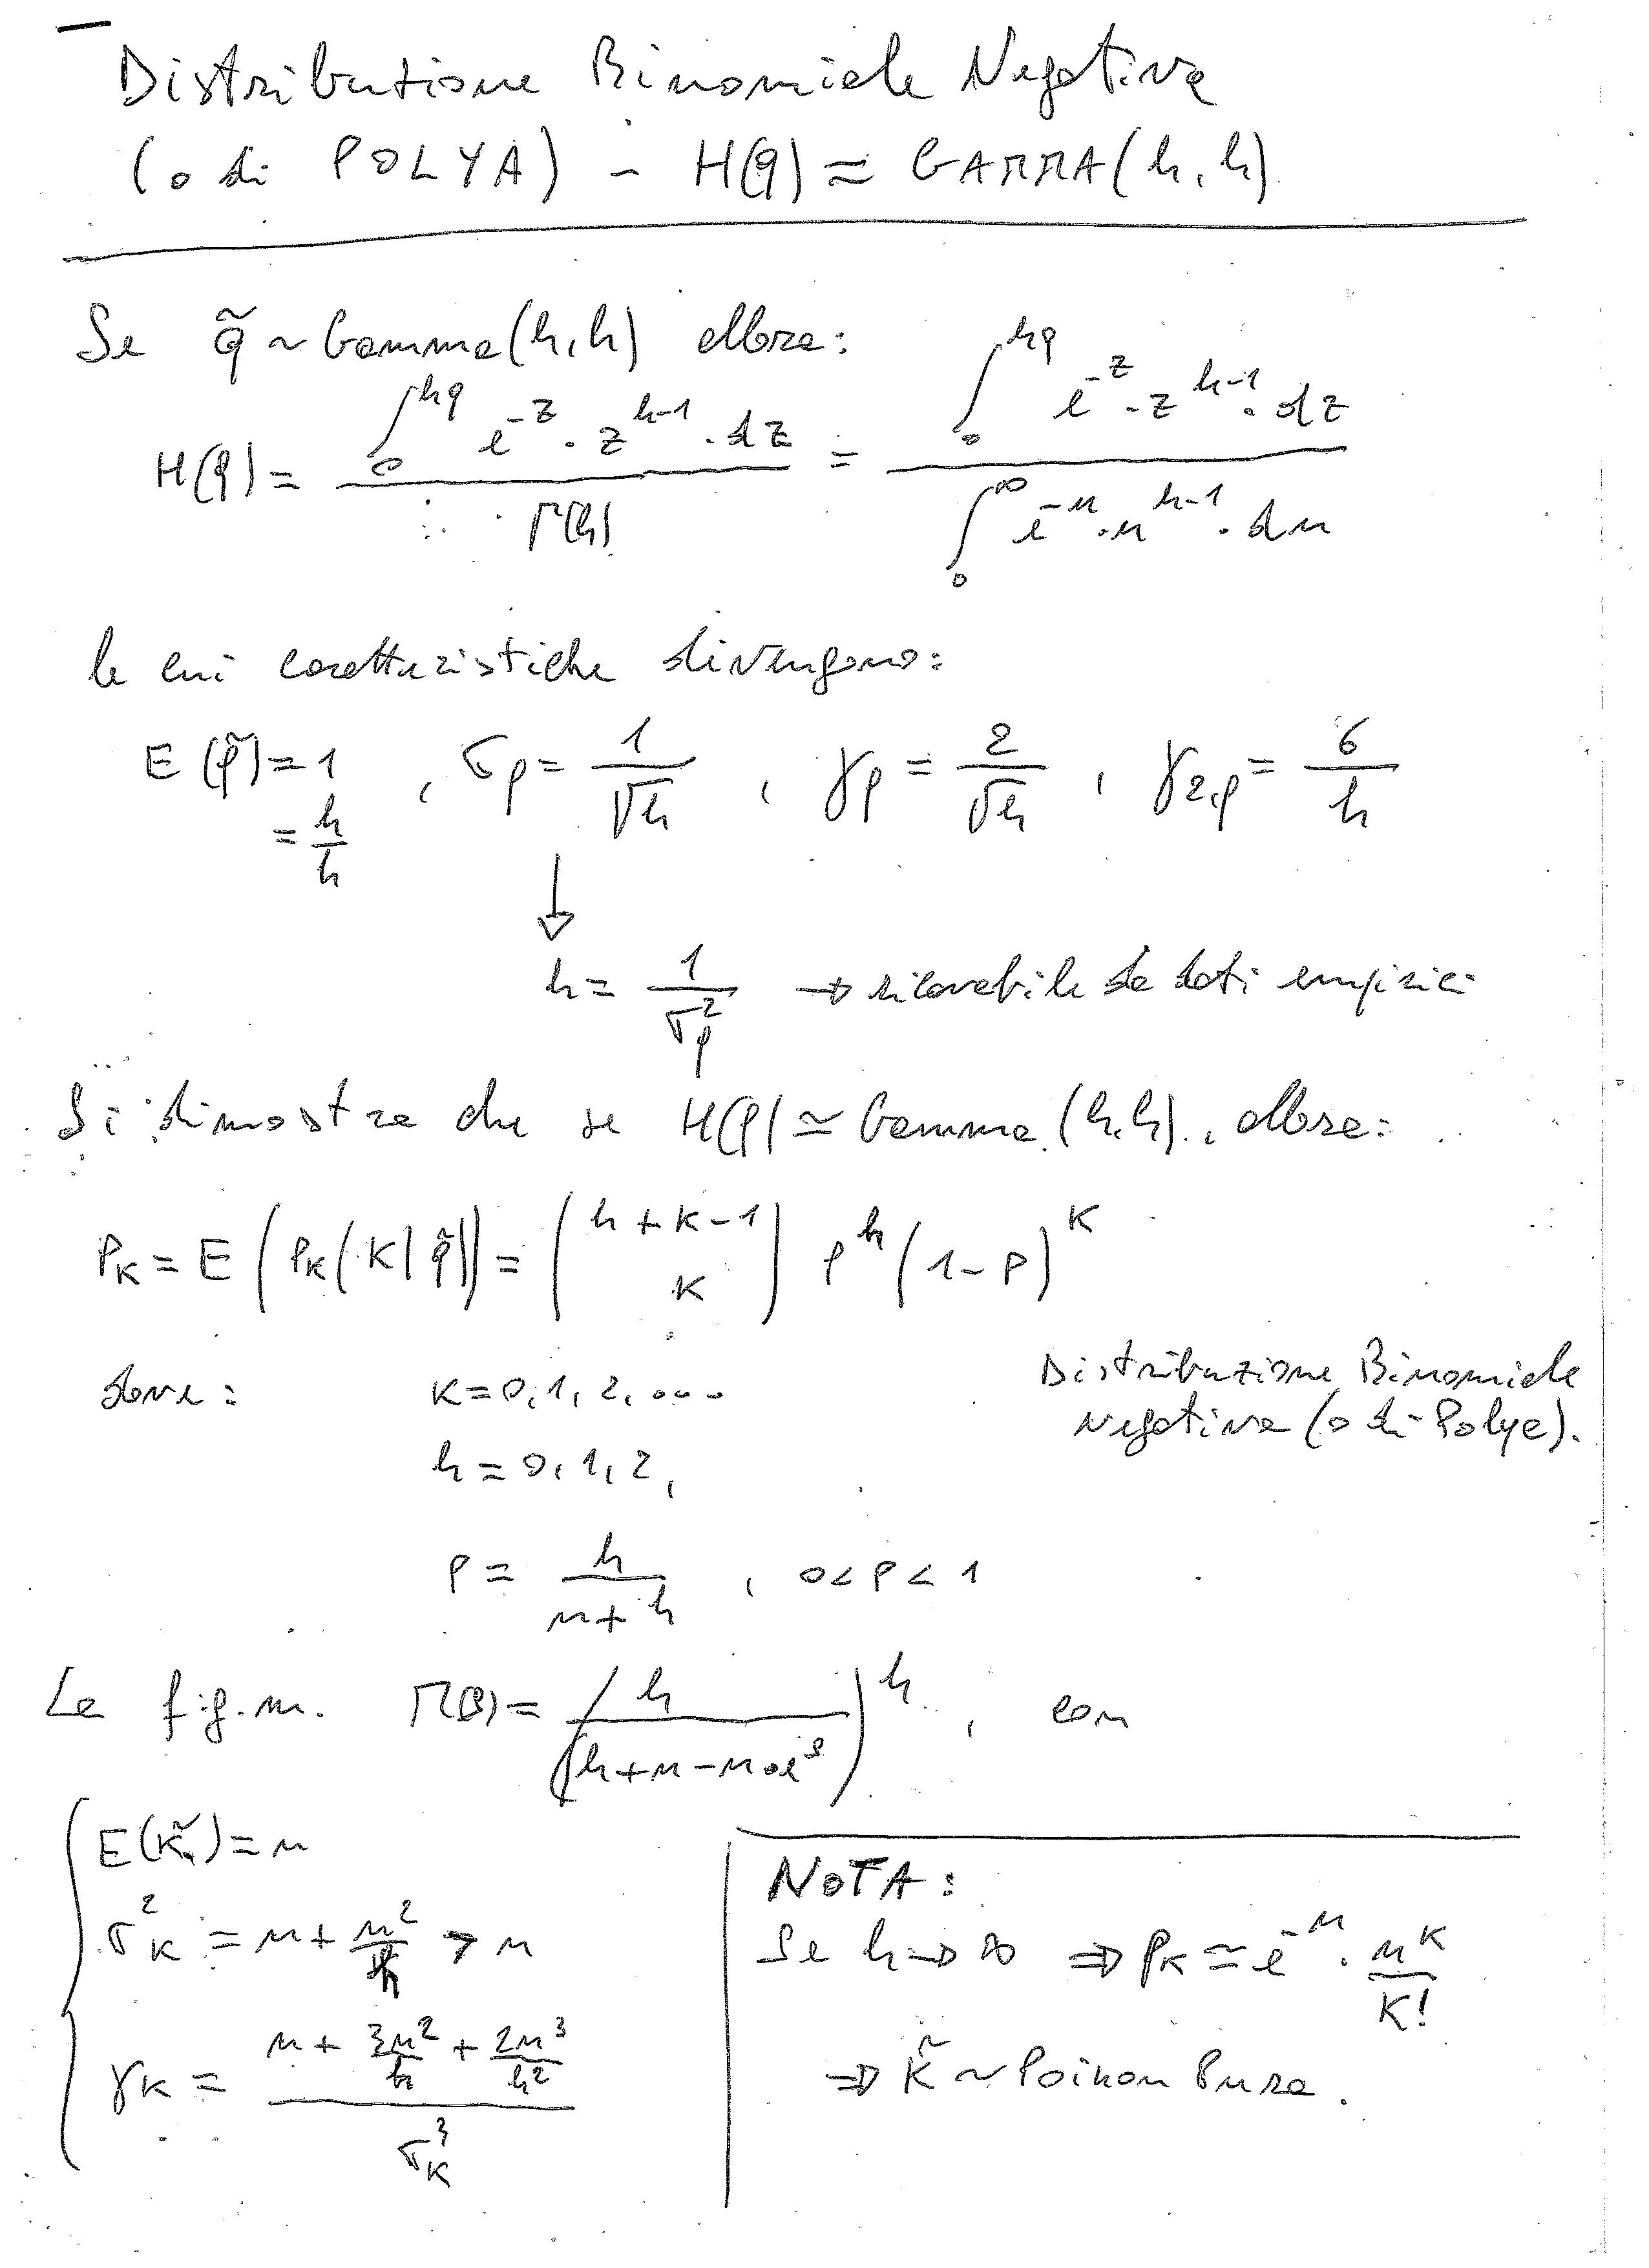 Distribuzione Binomiale Negativa
(o di POLYA) - H(q) ≃ GAMMA(h,h)
Se q̃ ~ Gamma(h,h) allora:
H(q) = ∫₀^{hq} e^{-z} · z^{h-1} · dz / Γ(h) = ∫₀^{hq} e^{-z} · z^{h-1} · dz / ∫₀^∞ e^{-u} · u^{h-1} · du
le cui caratteristiche divengono:
E(q̃) = 1 = h/h , σ_q = 1/√h , γ_q = 2/√h , γ_{2,q} = 6/h
↓
h = 1/σ_q² → ricavabile da dati empirici
Si dimostra che se H(q) ≃ Gamma (h,h), allora:
P_K = E(P_K(K|q̃)) = (h+K-1 K) p^h (1-p)^K
dove: K=0,1,2,...
Distribuzione Binomiale
Negativa (o di Polya).
h=0,1,2,
p = h/(n+h) , 0<p<1
La f.g.m. M(s) = (h/(h+n-n·e^s))^h , con
E(K̃) = n
σ_K² = n + n²/h > n
γ_K = (n + 3n²/h + 2n³/h²) / σ_K³
NOTA:
Se h→∞ ⇒ p_K ≃ e^{-n} · n^K/K!
⇒ K̃ ~ Poisson Pura.